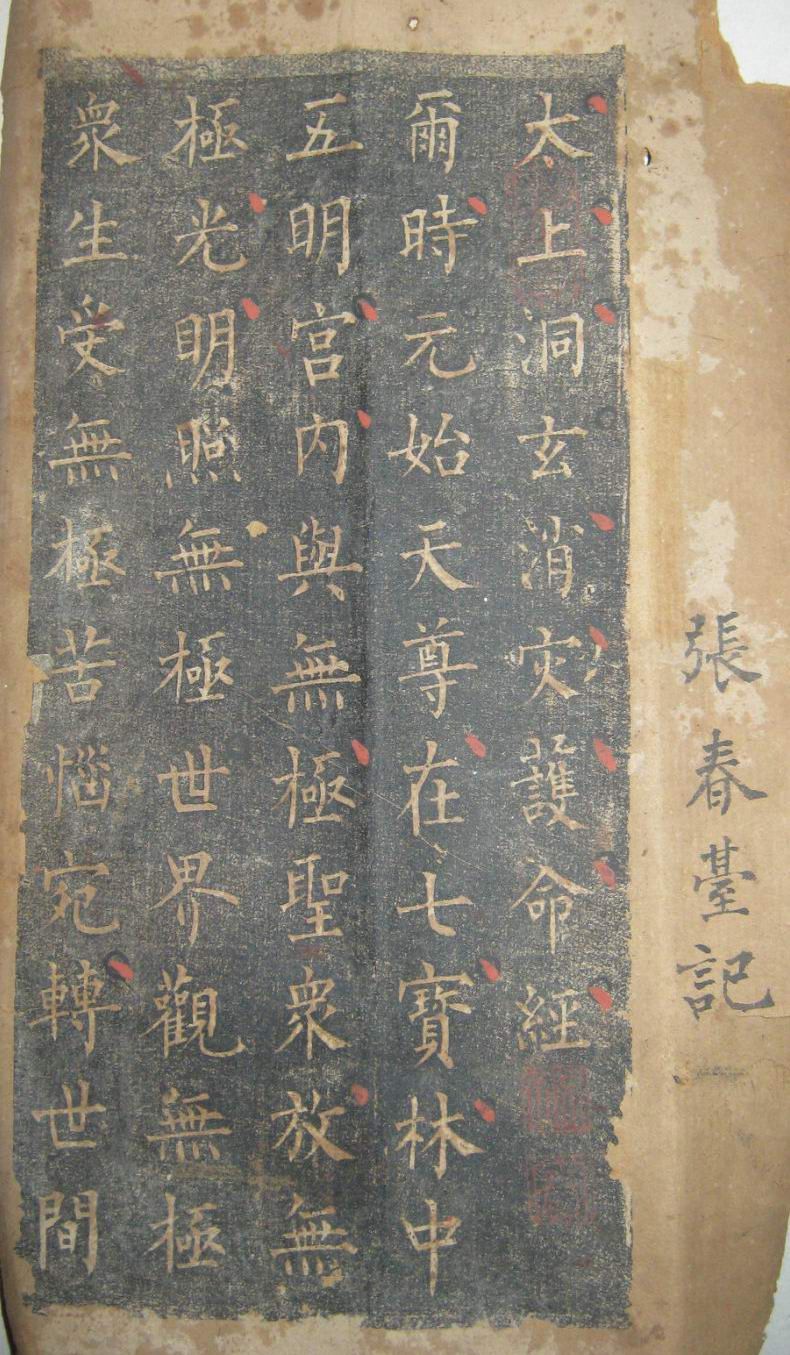 張春臺記
太上洞玄消灾護命經
爾時元始天尊在七寶林中
五明宮內與無極聖衆放無
極光明照無極世界觀無極
衆生受無極苦惱宛轉世間